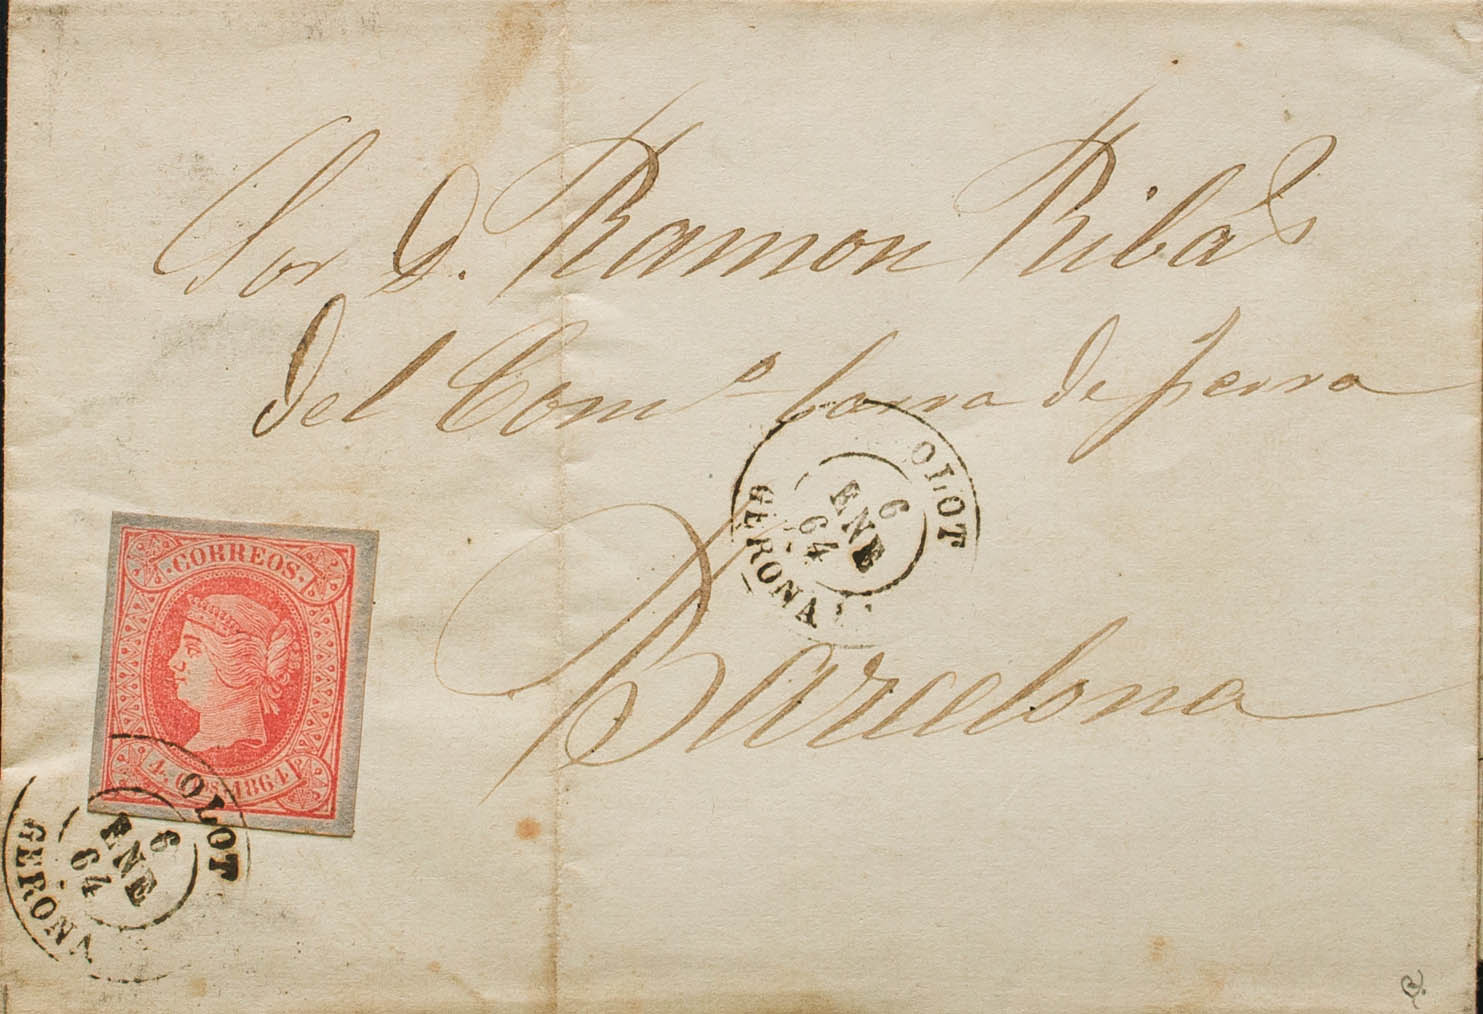 Sor D. Ramon Ribas
del Comº barra de ferro
Barcelona
OLOT
6
ENE
64
GERONA
CORREOS
4 Cos 1864
OLOT
6
ENE
64
GERONA